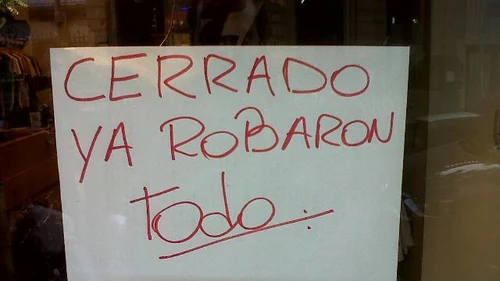 CERRADO
YA ROBARON
Todo.